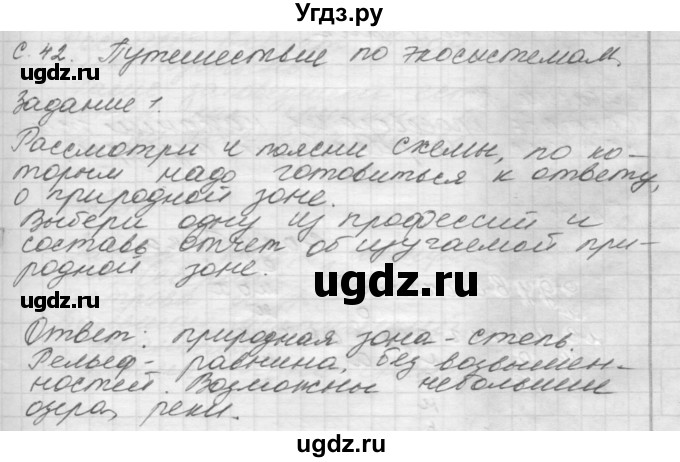 Угдз.ру
С. 42. Путешествие по экосистемам.
ugdz.ru
ugdz.ru
Задание 1.
Рассмотри и поясни схемы, по ко-
торым надо готовиться к ответу,
о природной зоне.
Выбери одну из профессий и
составь отчет об изучаемой при-
родной зоне.
ugdz.ru
ugdz.ru
Ответ: природная зона - степь
Рельеф - равнина, без возвышен-
ностей. Возможны небольшие
озера, реки.
ugdz.ru
ugdz.ru